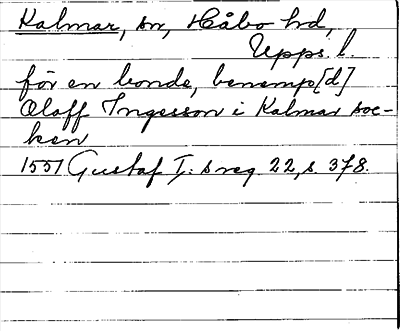 Kalmar, sn, Håbo hd,
Upps. l.
för en bonde, benemp[d]
Olaff Ingesson i Kalmar soc-
ken
1551 Gustaf I:s reg. 22, s. 378.